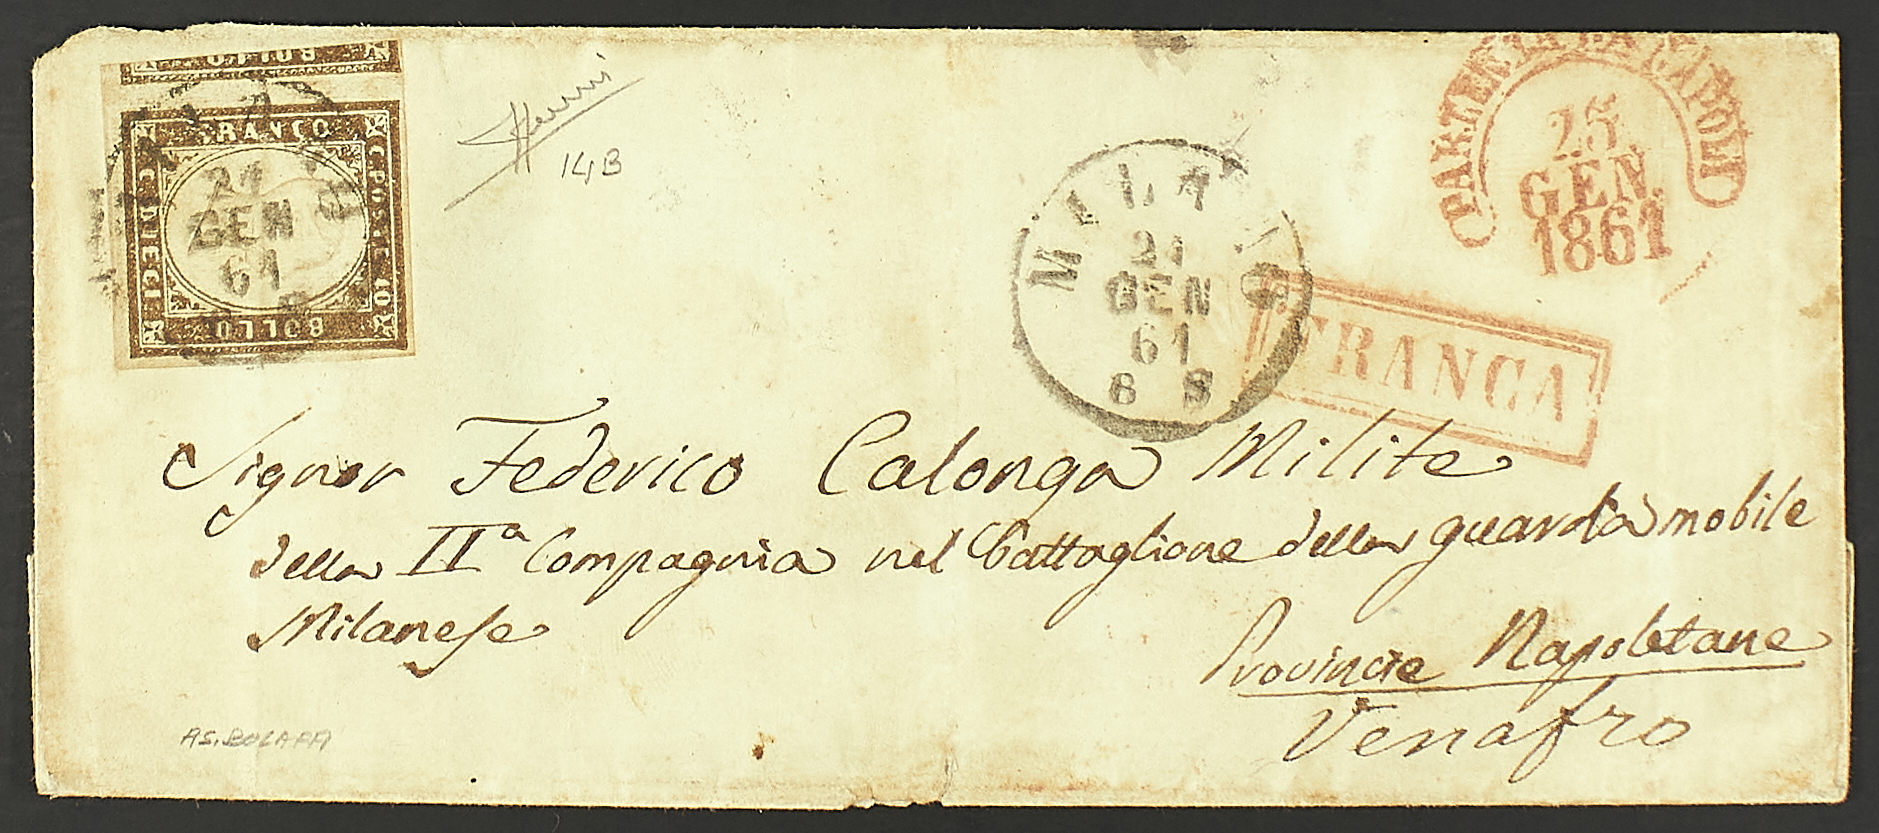 BOLLO
FRANCO
C. DIECI
C. POSTALE 10
BOLLO
21
GEN
61
14B
MILANO
21
GEN
61
8 S
PARTENZA DA NAPOLI
25
GEN.
1861
FRANCA
Signor Federico Calonga Milite
della IIª Compagnia nel Battaglione della guardia mobile
Milanese
Provincie Napoletane
Venafro
AS. BOLAFFI